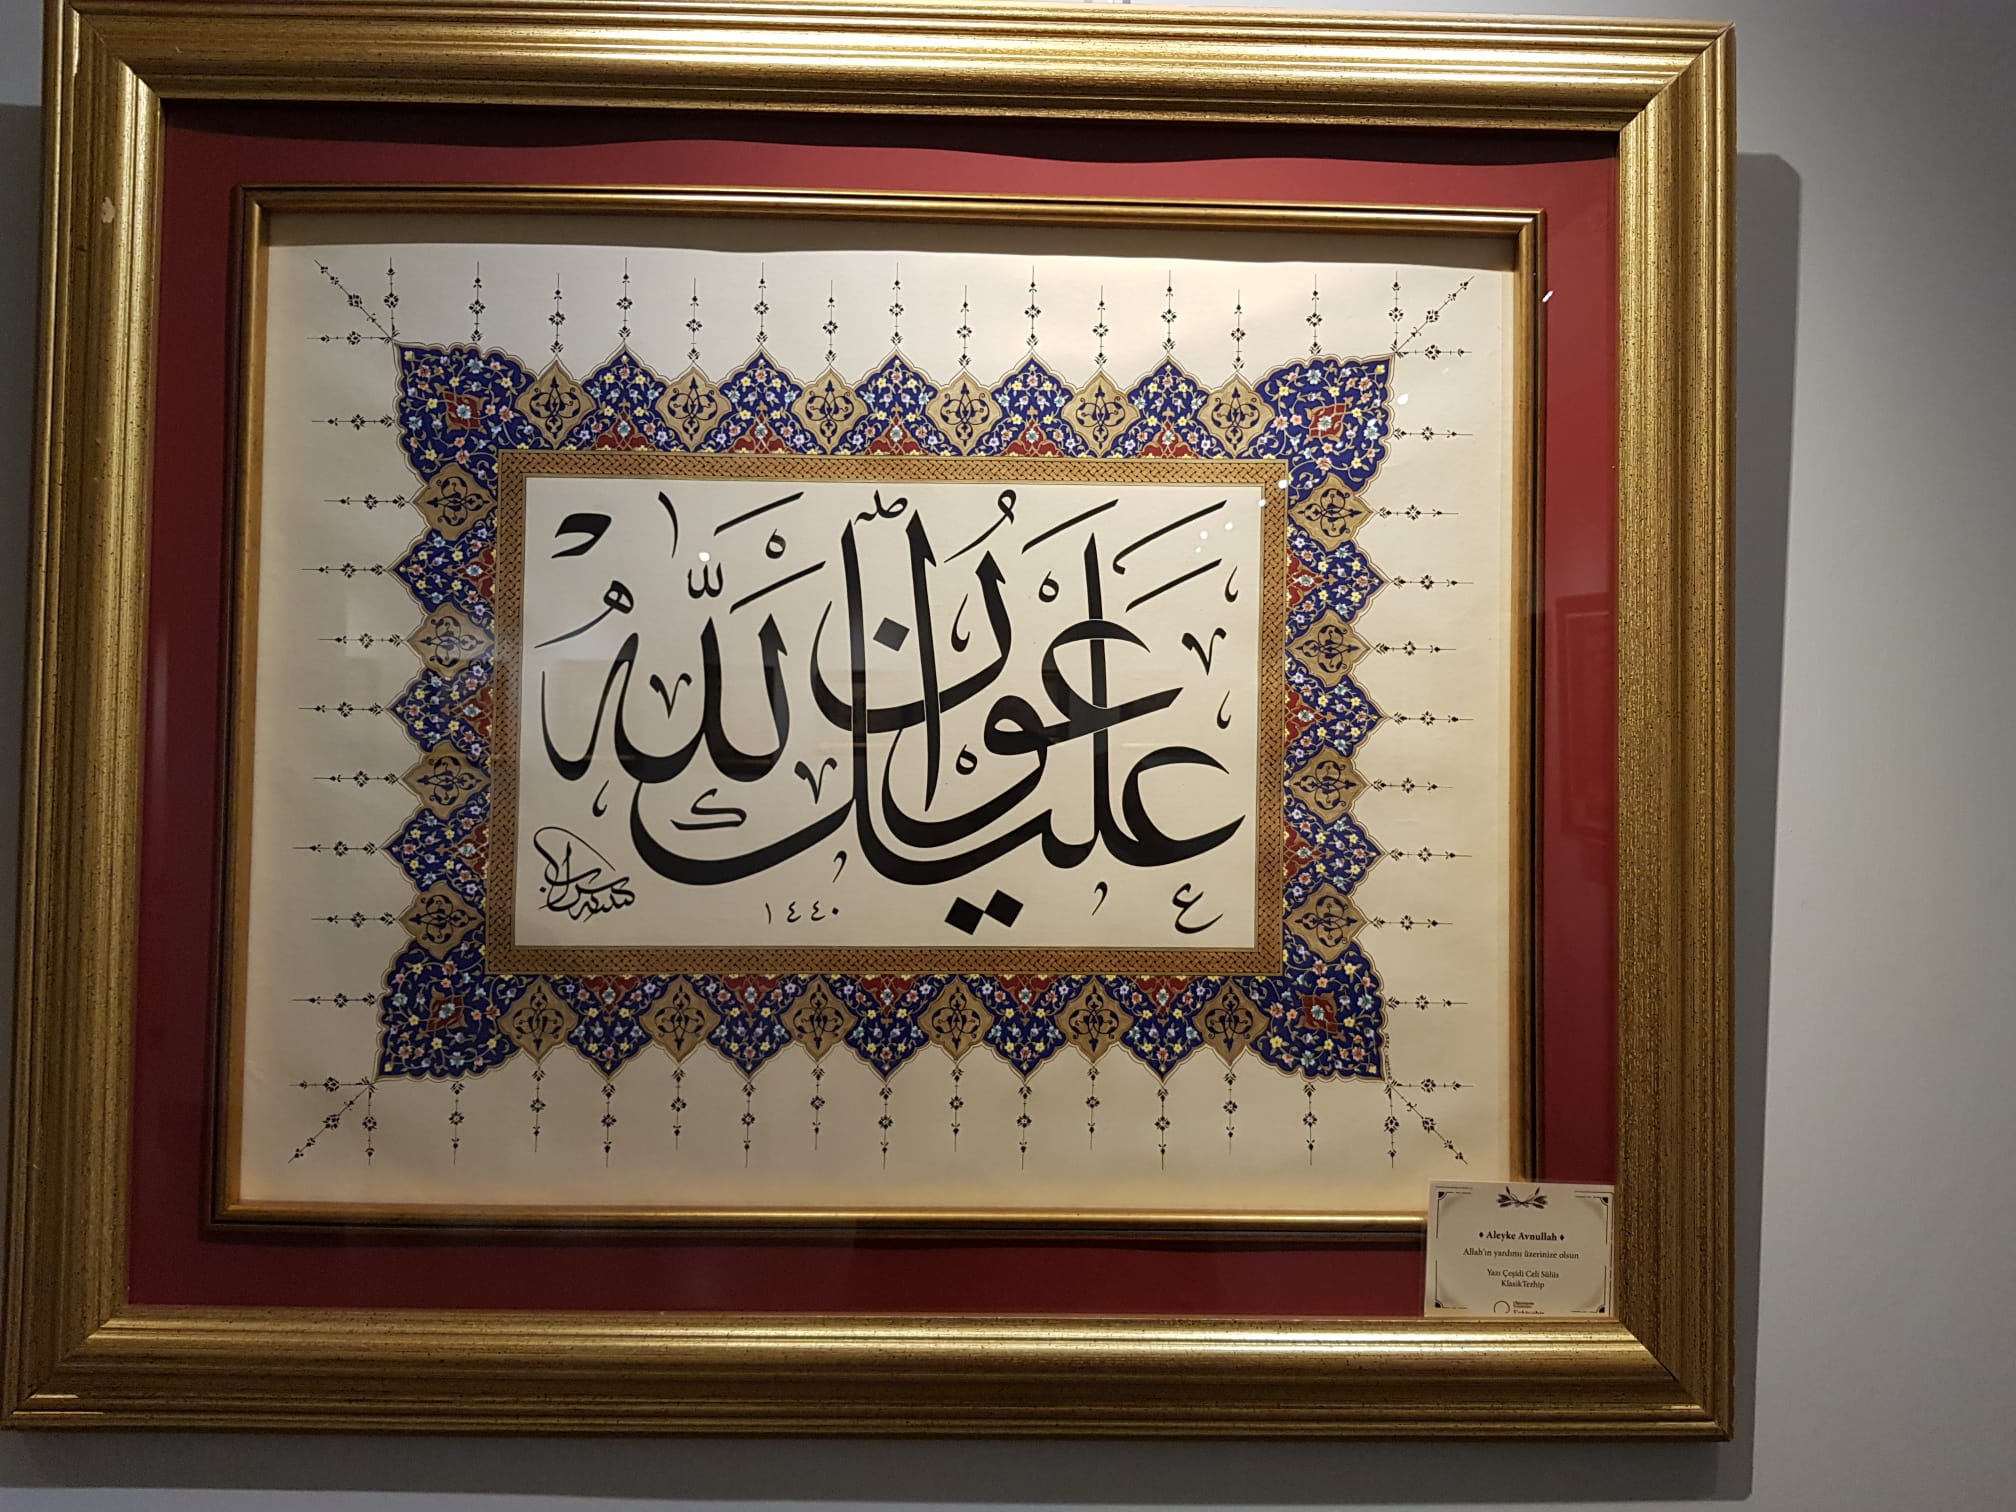 عليك عون الله
١٤٤٠
Aleyke Avnullah
Allah'ın yardımı üzerinize olsun
Yazı Çeşidi Celi Sülüs
Klasik Tezhip